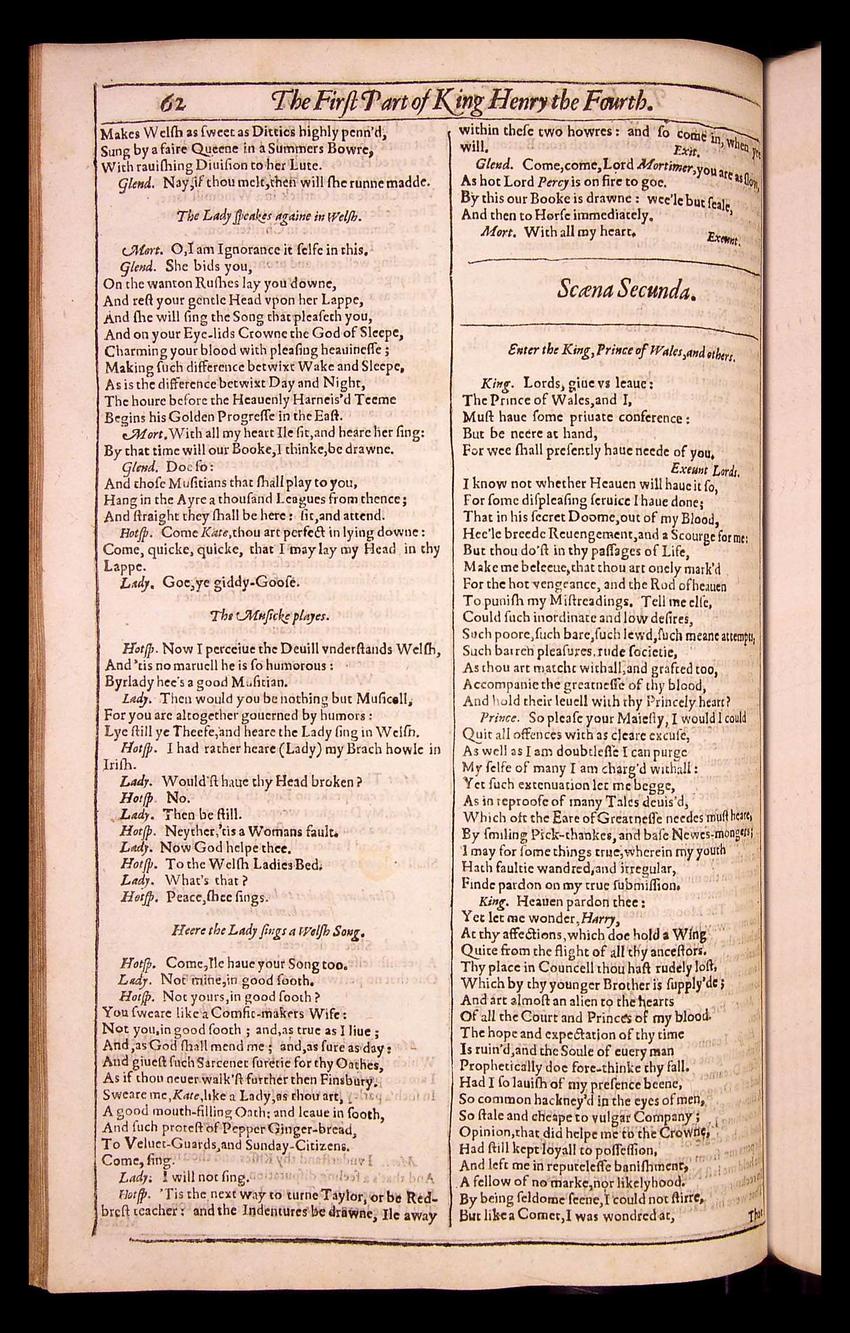 62 The Firſt Part of King Henry the Fourth.
Makes Welſh as ſweet as Ditties highly penn'd,
Sung by a faire Queene in a Summers Bowre,
With rauiſhing Diuiſion to her Lute.
Glend. Nay, if thou melt, then will ſhe runne madde.
The Lady ſpeakes againe in Welſh.
Mort. O, I am Ignorance it ſelfe in this.
Glend. She bids you,
On the wanton Ruſhes lay you downe,
And reſt your gentle Head vpon her Lappe,
And ſhe will ſing the Song that pleaſeth you,
And on your Eye-lids Crowne the God of Sleepe,
Charming your blood with pleaſing heauineſſe;
Making ſuch difference betwixt Wake and Sleepe,
As is the difference betwixt Day and Night,
The houre before the Heauenly Harneis'd Teeme
Begins his Golden Progreſſe in the Eaſt.
Mort. With all my heart Ile ſit, and heare her ſing:
By that time will our Booke, I thinke, be drawne.
Glend. Doe ſo:
And thoſe Muſitians that ſhall play to you,
Hang in the Ayre a thouſand Leagues from thence;
And ſtraight they ſhall be here: ſit, and attend.
Hotſp. Come Kate, thou art perfect in lying downe:
Come, quicke, quicke, that I may lay my Head in thy
Lappe.
Lady. Goe, ye giddy-Gooſe.
The Muſicke playes.
Hotſp. Now I perceiue the Deuill vnderſtands Welſh,
And 'tis no maruell he is ſo humorous:
Byrlady hee's a good Muſitian.
Lady. Then would you be nothing but Muſicall,
For you are altogether gouerned by humors:
Lye ſtill ye Theefe, and heare the Lady ſing in Welſh.
Hotſp. I had rather heare (Lady) my Brach howle in
Iriſh.
Lady. Would'ſt haue thy Head broken?
Hotſp. No.
Lady. Then be ſtill.
Hotſp. Neyther, 'tis a Womans fault.
Lady. Now God helpe thee.
Hotſp. To the Welſh Ladies Bed.
Lady. What's that?
Hotſp. Peace, ſhee ſings.
Heere the Lady ſings a Welſh Song.
Hotſp. Come, Ile haue your Song too.
Lady. Not mine, in good ſooth.
Hotſp. Not yours, in good ſooth?
You ſweare like a Comfit-makers Wife:
Not you, in good ſooth; and, as true as I liue;
And, as God ſhall mend me; and, as ſure as day:
And giueſt ſuch Sarcenet ſuretie for thy Oathes,
As if thou neuer walk'ſt further then Finsbury.
Sweare me, Kate, like a Lady, as thou art,
A good mouth-filling Oath: and leaue in ſooth,
And ſuch proteſt of Pepper Ginger-bread,
To Veluet-Guards, and Sunday-Citizens.
Come, ſing.
Lady. I will not ſing.
Hotſp. 'Tis the next way to turne Taylor, or be Red-
breſt teacher: and the Indentures be drawne, Ile away
within theſe two howres: and ſo come in, when ye
will. Exit.
Glend. Come, come, Lord Mortimer, you are as ſlow,
As hot Lord Percy is on fire to goe.
By this our Booke is drawne: wee'le but ſeale,
And then to Horſe immediately.
Mort. With all my heart. Exeunt.
Scæna Secunda.
Enter the King, Prince of Wales, and others.
King. Lords, giue vs leaue:
The Prince of Wales, and I,
Muſt haue ſome priuate conference:
But be neere at hand,
For wee ſhall preſently haue neede of you.
Exeunt Lords.
I know not whether Heauen will haue it ſo,
For ſome diſpleaſing ſeruice I haue done;
That in his ſecret Doome, out of my Blood,
Hee'le breede Reuengement, and a Scourge for me:
But thou do'ſt in thy paſſages of Life,
Make me beleeue, that thou art onely mark'd
For the hot vengeance, and the Rod of heauen
To puniſh my Miſtreadings. Tell me elſe,
Could ſuch inordinate and low deſires,
Such poore, ſuch bare, ſuch lewd, ſuch meane attempts,
Such barren pleaſures, rude ſocietie,
As thou art matcht withall, and grafted too,
Accompanie the greatneſſe of thy blood,
And hold their leuell with thy Princely heart?
Prince. So pleaſe your Maieſty, I would I could
Quit all offences with as cleare excuſe,
As well as I am doubtleſſe I can purge
My ſelfe of many I am charg'd withall:
Yet ſuch extenuation let me begge,
As in reproofe of many Tales deuis'd,
Which oft the Eare of Greatneſſe needes muſt heare,
By ſmiling Pick-thankes, and baſe Newes-mongers;
I may for ſome things true, wherein my youth
Hath faultie wandred, and irregular,
Finde pardon on my true ſubmiſſion.
King. Heauen pardon thee:
Yet let me wonder, Harry,
At thy affections, which doe hold a Wing
Quite from the flight of all thy anceſtors.
Thy place in Councell thou haſt rudely loſt,
Which by thy younger Brother is ſupply'de;
And art almoſt an alien to the hearts
Of all the Court and Princes of my blood.
The hope and expectation of thy time
Is ruin'd, and the Soule of euery man
Prophetically doe fore-thinke thy fall.
Had I ſo lauiſh of my preſence beene,
So common hackney'd in the eyes of men,
So ſtale and cheape to vulgar Company;
Opinion, that did helpe me to the Crowne,
Had ſtill kept loyall to poſſeſſion,
And left me in reputeleſſe baniſhment,
A fellow of no marke, nor likelyhood.
By being ſeldome ſeene, I could not ſtirre,
But like a Comet, I was wondred at,
That